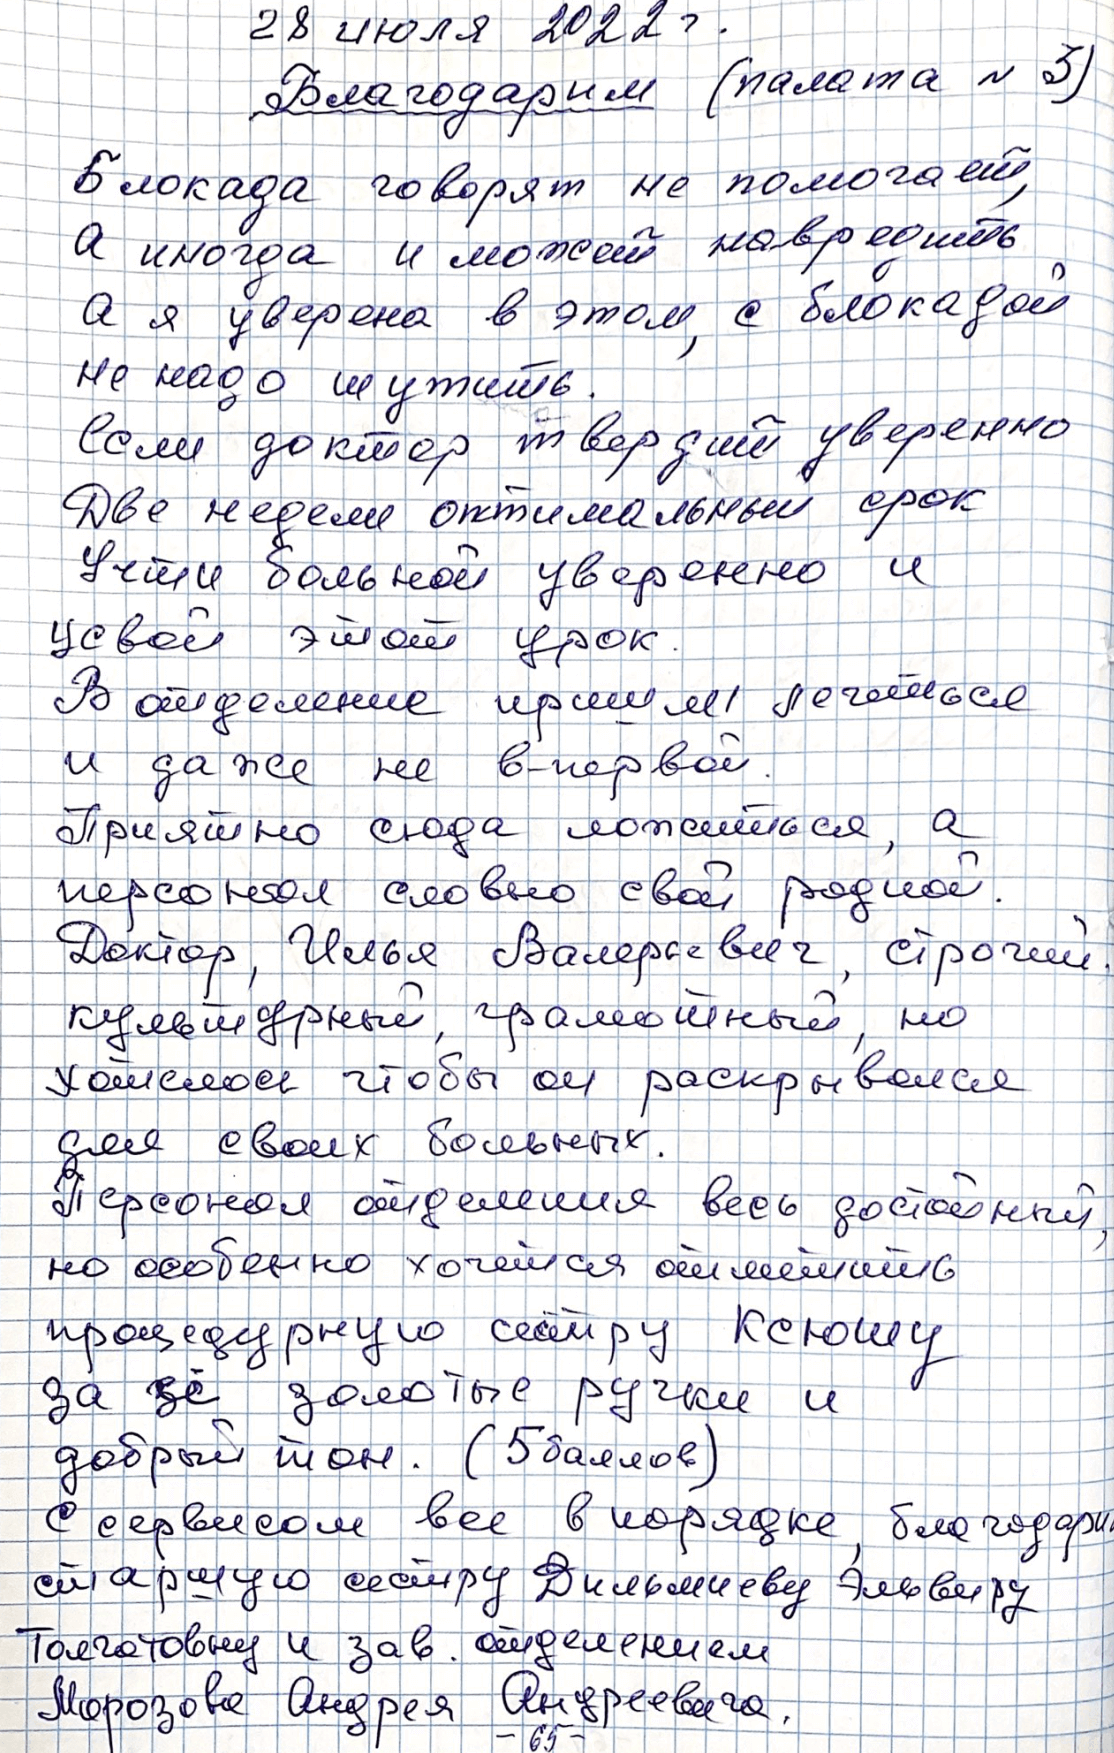 28 июля 2022 г.
Благодарим (палата № 3)
Блокада говорят не помогает,
а иногда и может навредить
а я уверена в этом, с блокадой
не надо шутить.
Если доктор твердит уверенно
Две недели оптимальный срок
Учти больной уверенно и
усвой этот урок.
В отделение пришли лечиться
и даже не в-первой.
Приятно сюда ложиться, а
персонал словно свой родной.
Доктор, Илья Валерьевич, строгий,
культурный, грамотный, но
хотелось чтобы он раскрывался
для своих больных.
Персонал отделения весь достойный,
но особенно хочется отметить
процедурную сестру Ксюшу
за её золотые ручки и
добрый тон. (5 баллов)
С сервисом все в порядке, благодарим
старшую сестру Дильмиеву Эльвиру
Толгатовну и зав. отделением
Морозова Андрея Андреевича.
- 65 -